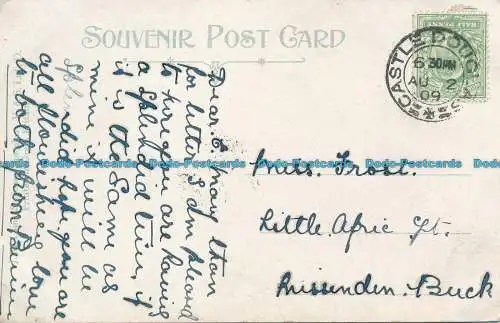 SOUVENIR POST CARD
HALFPENNY
CASTLE DOUG
6 30PM
AU 2
09
Dear E many than
for letter I am pleased
to hear you are having
a splendid time, if
it is the same as
mine it will be
Splendid hope you are
all flourishing love
to both from
Miss. Frost.
Little
Missenden. Buck
Dodo-Postcards Dodo-Postcards Dodo-Postcards Dodo-Postcards Dodo-Postcards